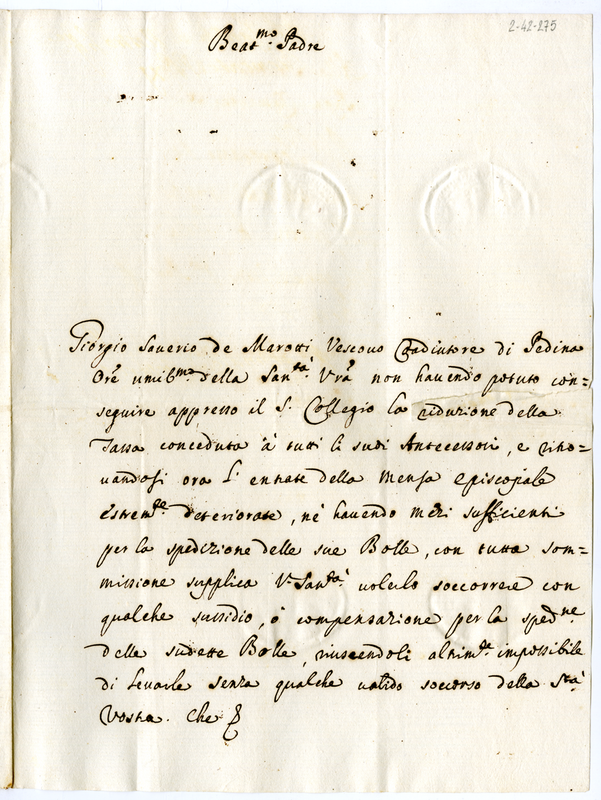 2-42-275
Beatmo Padre
Giorgio Saverio de Marotti Vescovo Coadiutore di Pedina
Ore umilmo della Santà Vra non havendo potuto con=
seguire appresso il S. Collegio la riduzione della
Tassa conceduta à tutti li suoi Antecessori, e ritro=
vandosi ora l'entrate della Mensa Episcopale
Estremte deteriorate, nè havendo mezi sufficienti
per la spedizione delle sue Bolle, con tutta som=
missione supplica V. Santà volerlo soccorrere con
qualche sussidio, ò compensazione per la spedne
delle sudette Bolle, riuscendoli altrimte impossibile
di levarle senza qualche valido soccorso della Stà
Vostra. Che